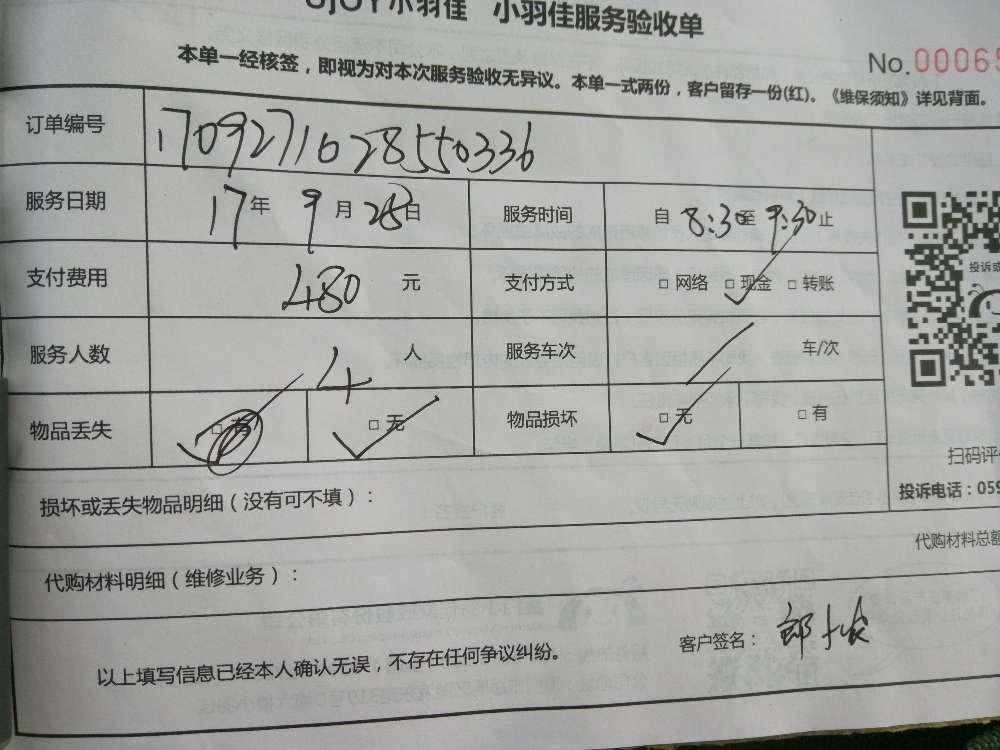 UjOY小羽佳 小羽佳服务验收单
No.00065
本单一经核签，即视为对本次服务验收无异议。本单一式两份，客户留存一份(红)。《维保须知》详见背面。
订单编号 17092716 28550336
服务日期 17年 9月 28日 服务时间 自 8:30至 9:30止
支付费用 480 元 支付方式 □ 网络 □ 现金 □ 转账
投诉或
服务人数 4 人 服务车次 车/次
物品丢失 □ 有 □ 无 物品损坏 □ 无 □ 有
扫码评
损坏或丢失物品明细（没有可不填）：
投诉电话：059
代购材料总额
代购材料明细（维修业务）：
以上填写信息已经本人确认无误，不存在任何争议纠纷。 客户签名：